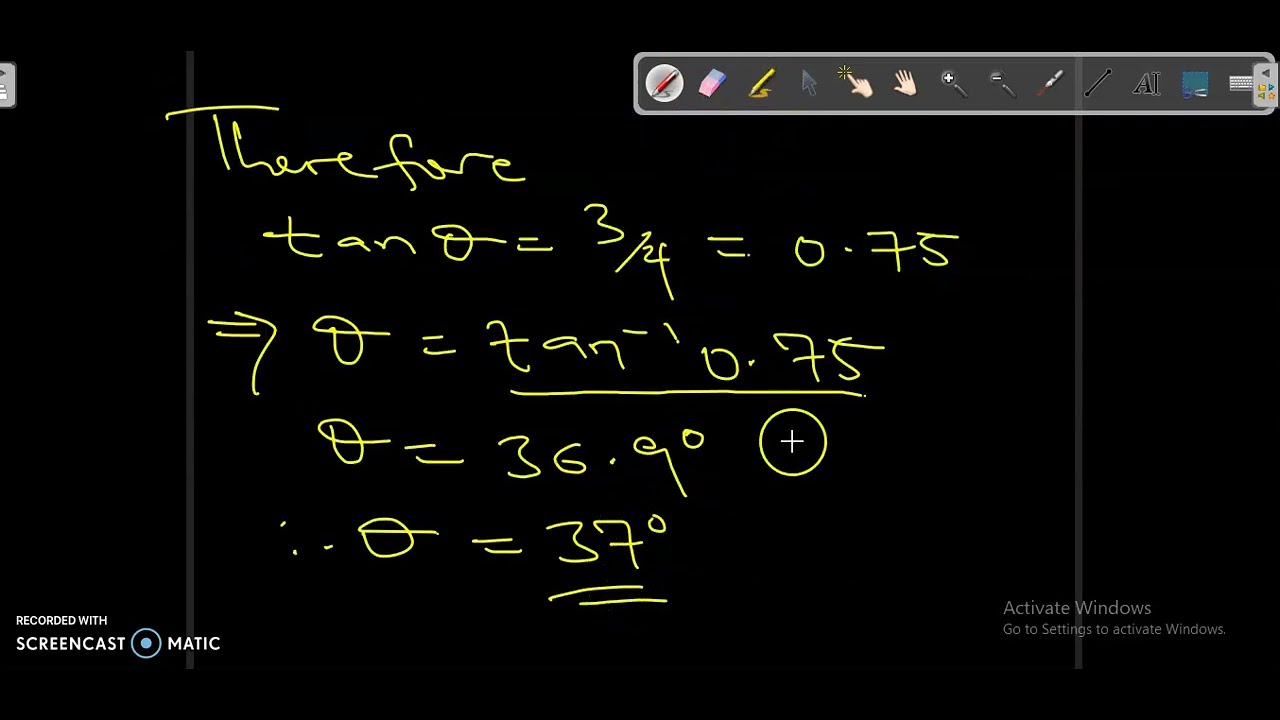 Therefore
tan θ = 3/4 = 0.75
⇒ θ = tan⁻¹ 0.75
θ = 36.9°
∴ θ = 37°
AI
RECORDED WITH
SCREENCAST MATIC
Activate Windows
Go to Settings to activate Windows.